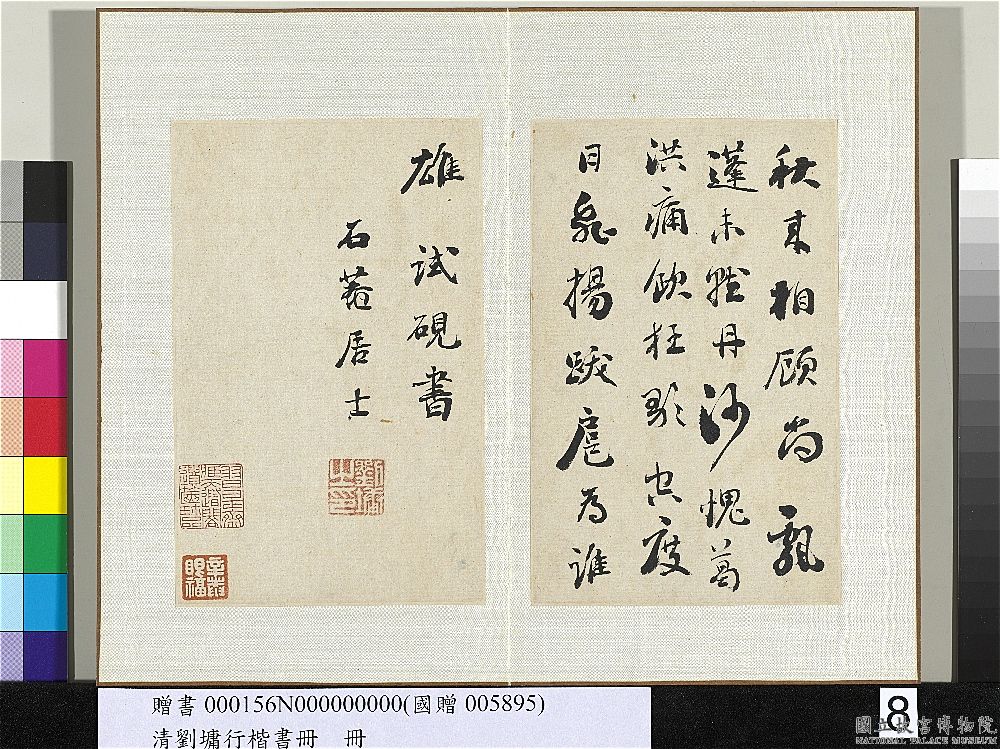 秋來相顧尚飄
蓬未就丹沙愧葛
洪痛飲狂歌空度
日飛揚跋扈為誰
雄 試硯書
石菴居士
劉墉之印
贈書 000156N000000000(國贈 005895)
清劉墉行楷書冊 冊
8
國立故宮博物院
NATIONAL PALACE MUSEUM